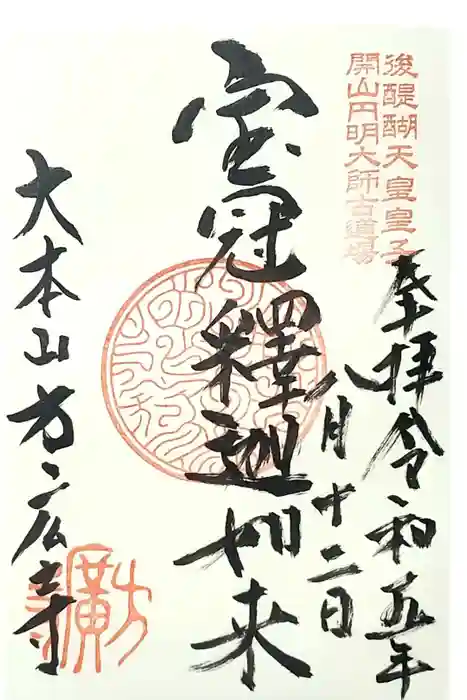 後醍醐天皇皇子
開山円明大師古道場
奉拝 令和五年
八月十二日
宝冠釋迦如来
大本山方广寺
方廣